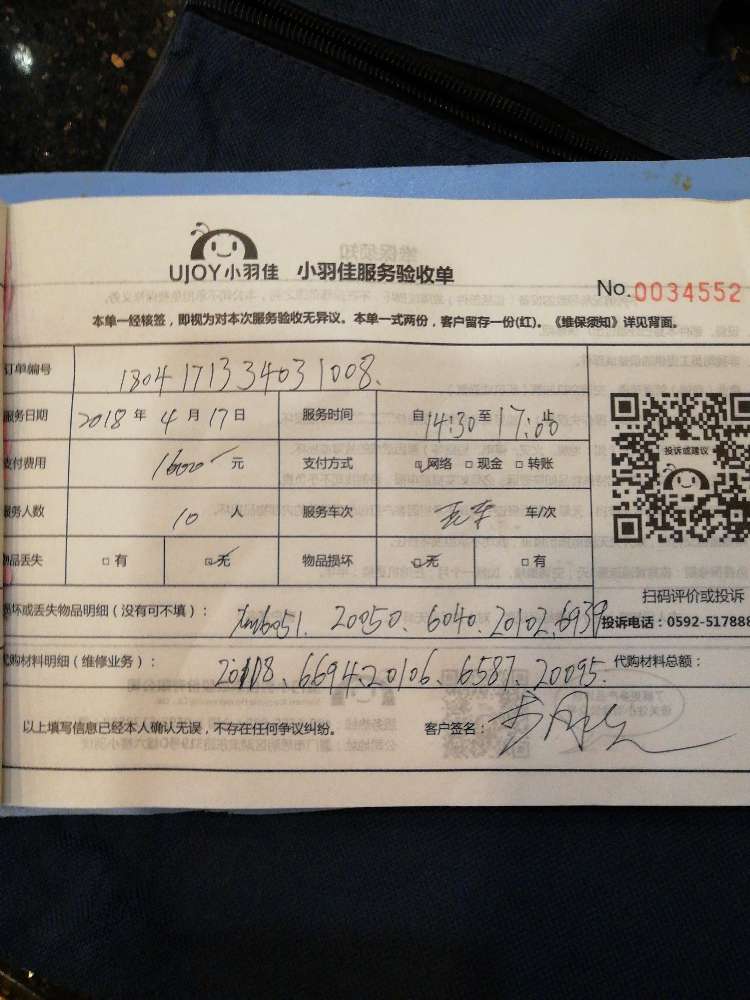 UJOY小羽佳 小羽佳服务验收单
No.0034552
本单一经核签，即视为对本次服务验收无异议。本单一式两份，客户留存一份(红)。《维保须知》详见背面。
订单编号 1804171334031008.
服务日期 2018 年 4 月 17 日 服务时间 自14:30至17:00止
支付费用 1600 元 支付方式 ☑网络 □现金 □转账
服务人数 10 人 服务车次 车/次
物品丢失 □有 ☑无 物品损坏 ☑无 □有
投诉或建议
扫码评价或投诉
损坏或丢失物品明细（没有可不填）： 6051. 20050. 6040. 20102. 6939
投诉电话：0592-517888
代购材料明细（维修业务）： 20108、6694、20106、6587、20095. 代购材料总额：
以上填写信息已经本人确认无误，不存在任何争议纠纷。 客户签名：